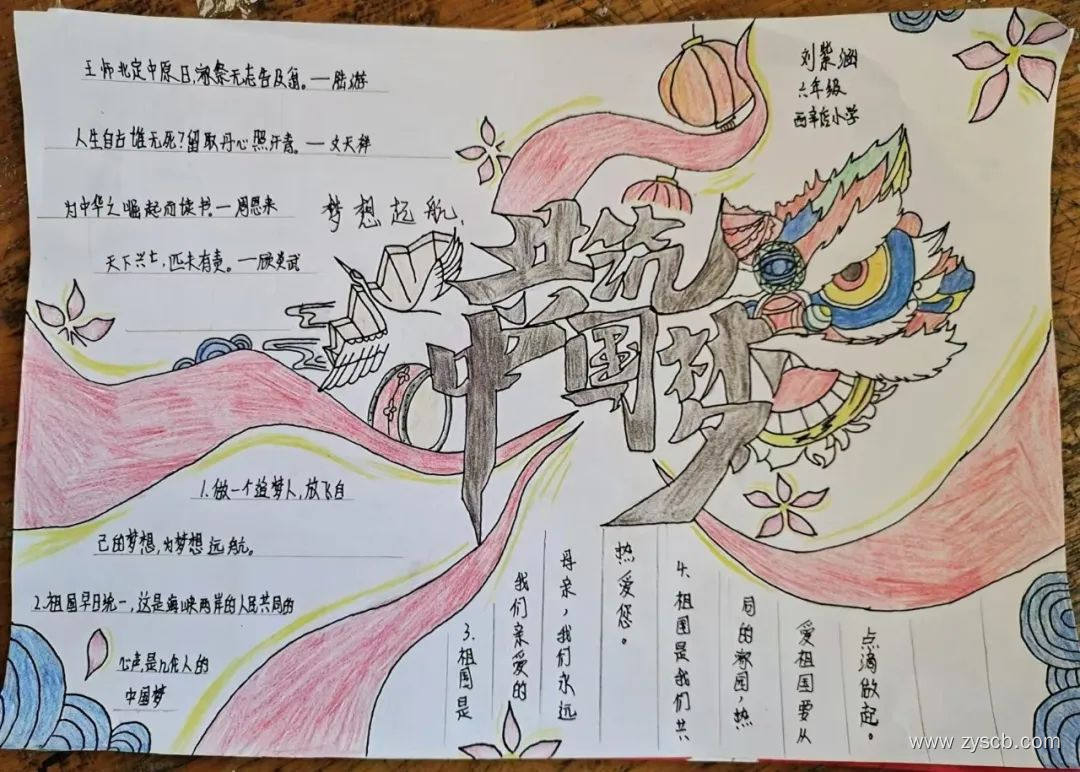 王师北定中原日,家祭无忘告及翁。—陆游
人生自古谁无死?留取丹心照汗青。—文天祥
为中华之崛起而读书。—周恩来
天下兴亡,匹夫有责。—顾炎武
梦想起航
刘紫涵
六年级
西辛店小学
共筑
中国梦
1.做一个追梦人,放飞自
己的梦想,为梦想远航。
2.祖国早日统一,这是海峡两岸的人民共同的
心声,是九佗人的
中国梦
3.祖国是
我们亲爱的
母亲,我们永远
热爱您。
4.祖国是我们共
同的家园,热
爱祖国要从
点滴做起。
www.zyscb.com